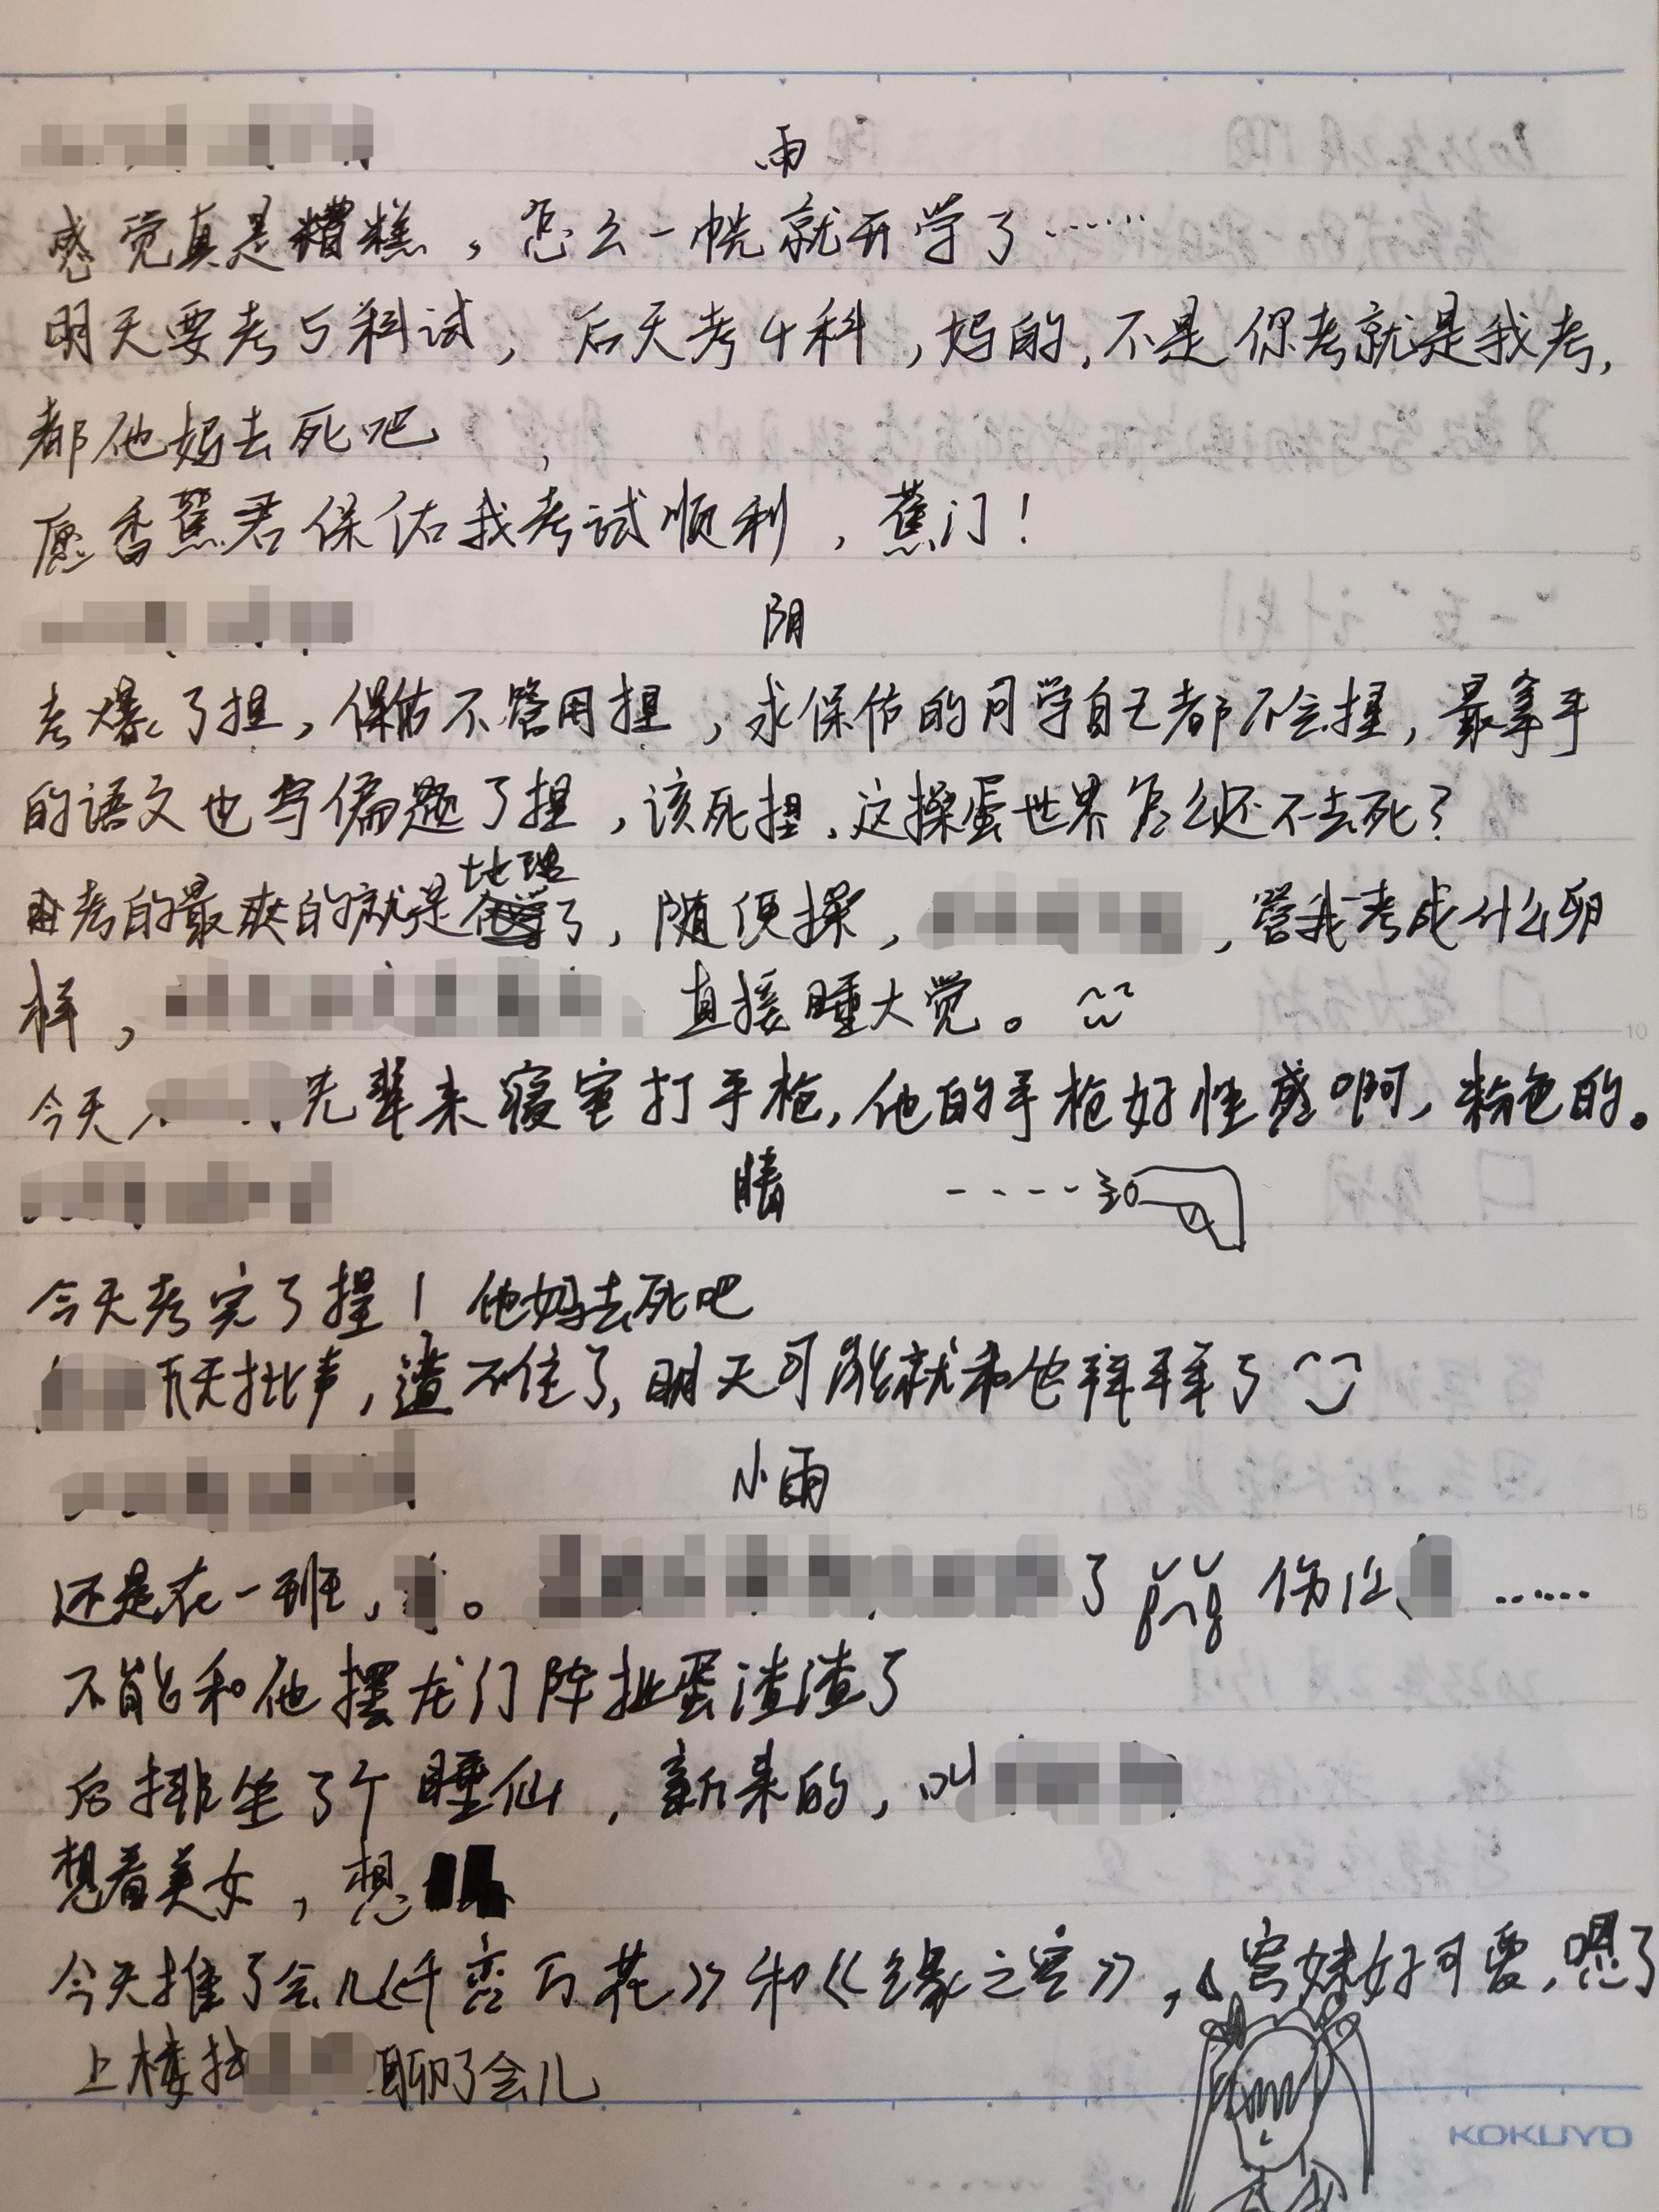 雨
感觉真是糟糕，怎么一恍就开学了……
明天要考5科试，后天考4科，妈的，不是你考就是我考，
都他妈去死吧
愿香蕉君保佑我考试顺利，蕉门！
阴
考爆了捏，保佑不管用捏，求保佑的同学自己都不会捏，最拿手
的语文也写偏题了捏，该死捏，这操蛋世界怎么还不去死？
考的最爽的就是地理了，随便操，，管我考成什么卵
样，直接睡大觉。
今天先辈来寝室打手枪，他的手枪好性感啊，粉色的。
晴
今天考完了捏！他妈去死吧
天批声，遭不住了，明天可能就和他拜拜了
小雨
还是在一班，。了伤心……
不能和他摆龙门阵扯蛋渣渣了
后排坐了个睡仙，新来的，叫
想看美女，想
今天推了会儿《千恋万花》和《缘之空》，穹妹好可爱，嗯了
上楼找聊了会儿
5
10
15
KOKUYO